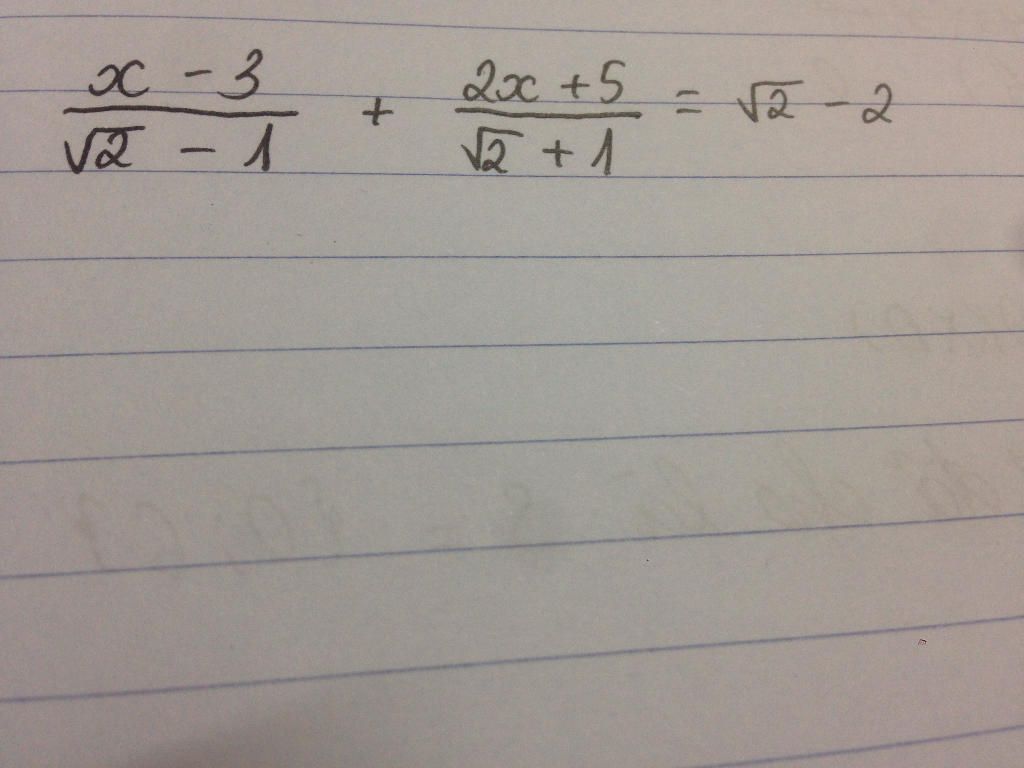 x - 3 / √2 - 1 + 2x + 5 / √2 + 1 = √2 - 2